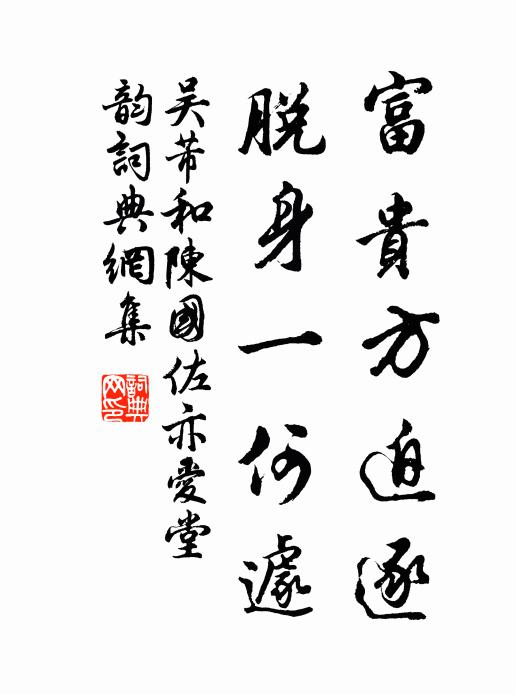 富貴方迫逐
脫身一何遽
吴芾和陳國佐亦愛堂
韵詞典網集
詞典
网印